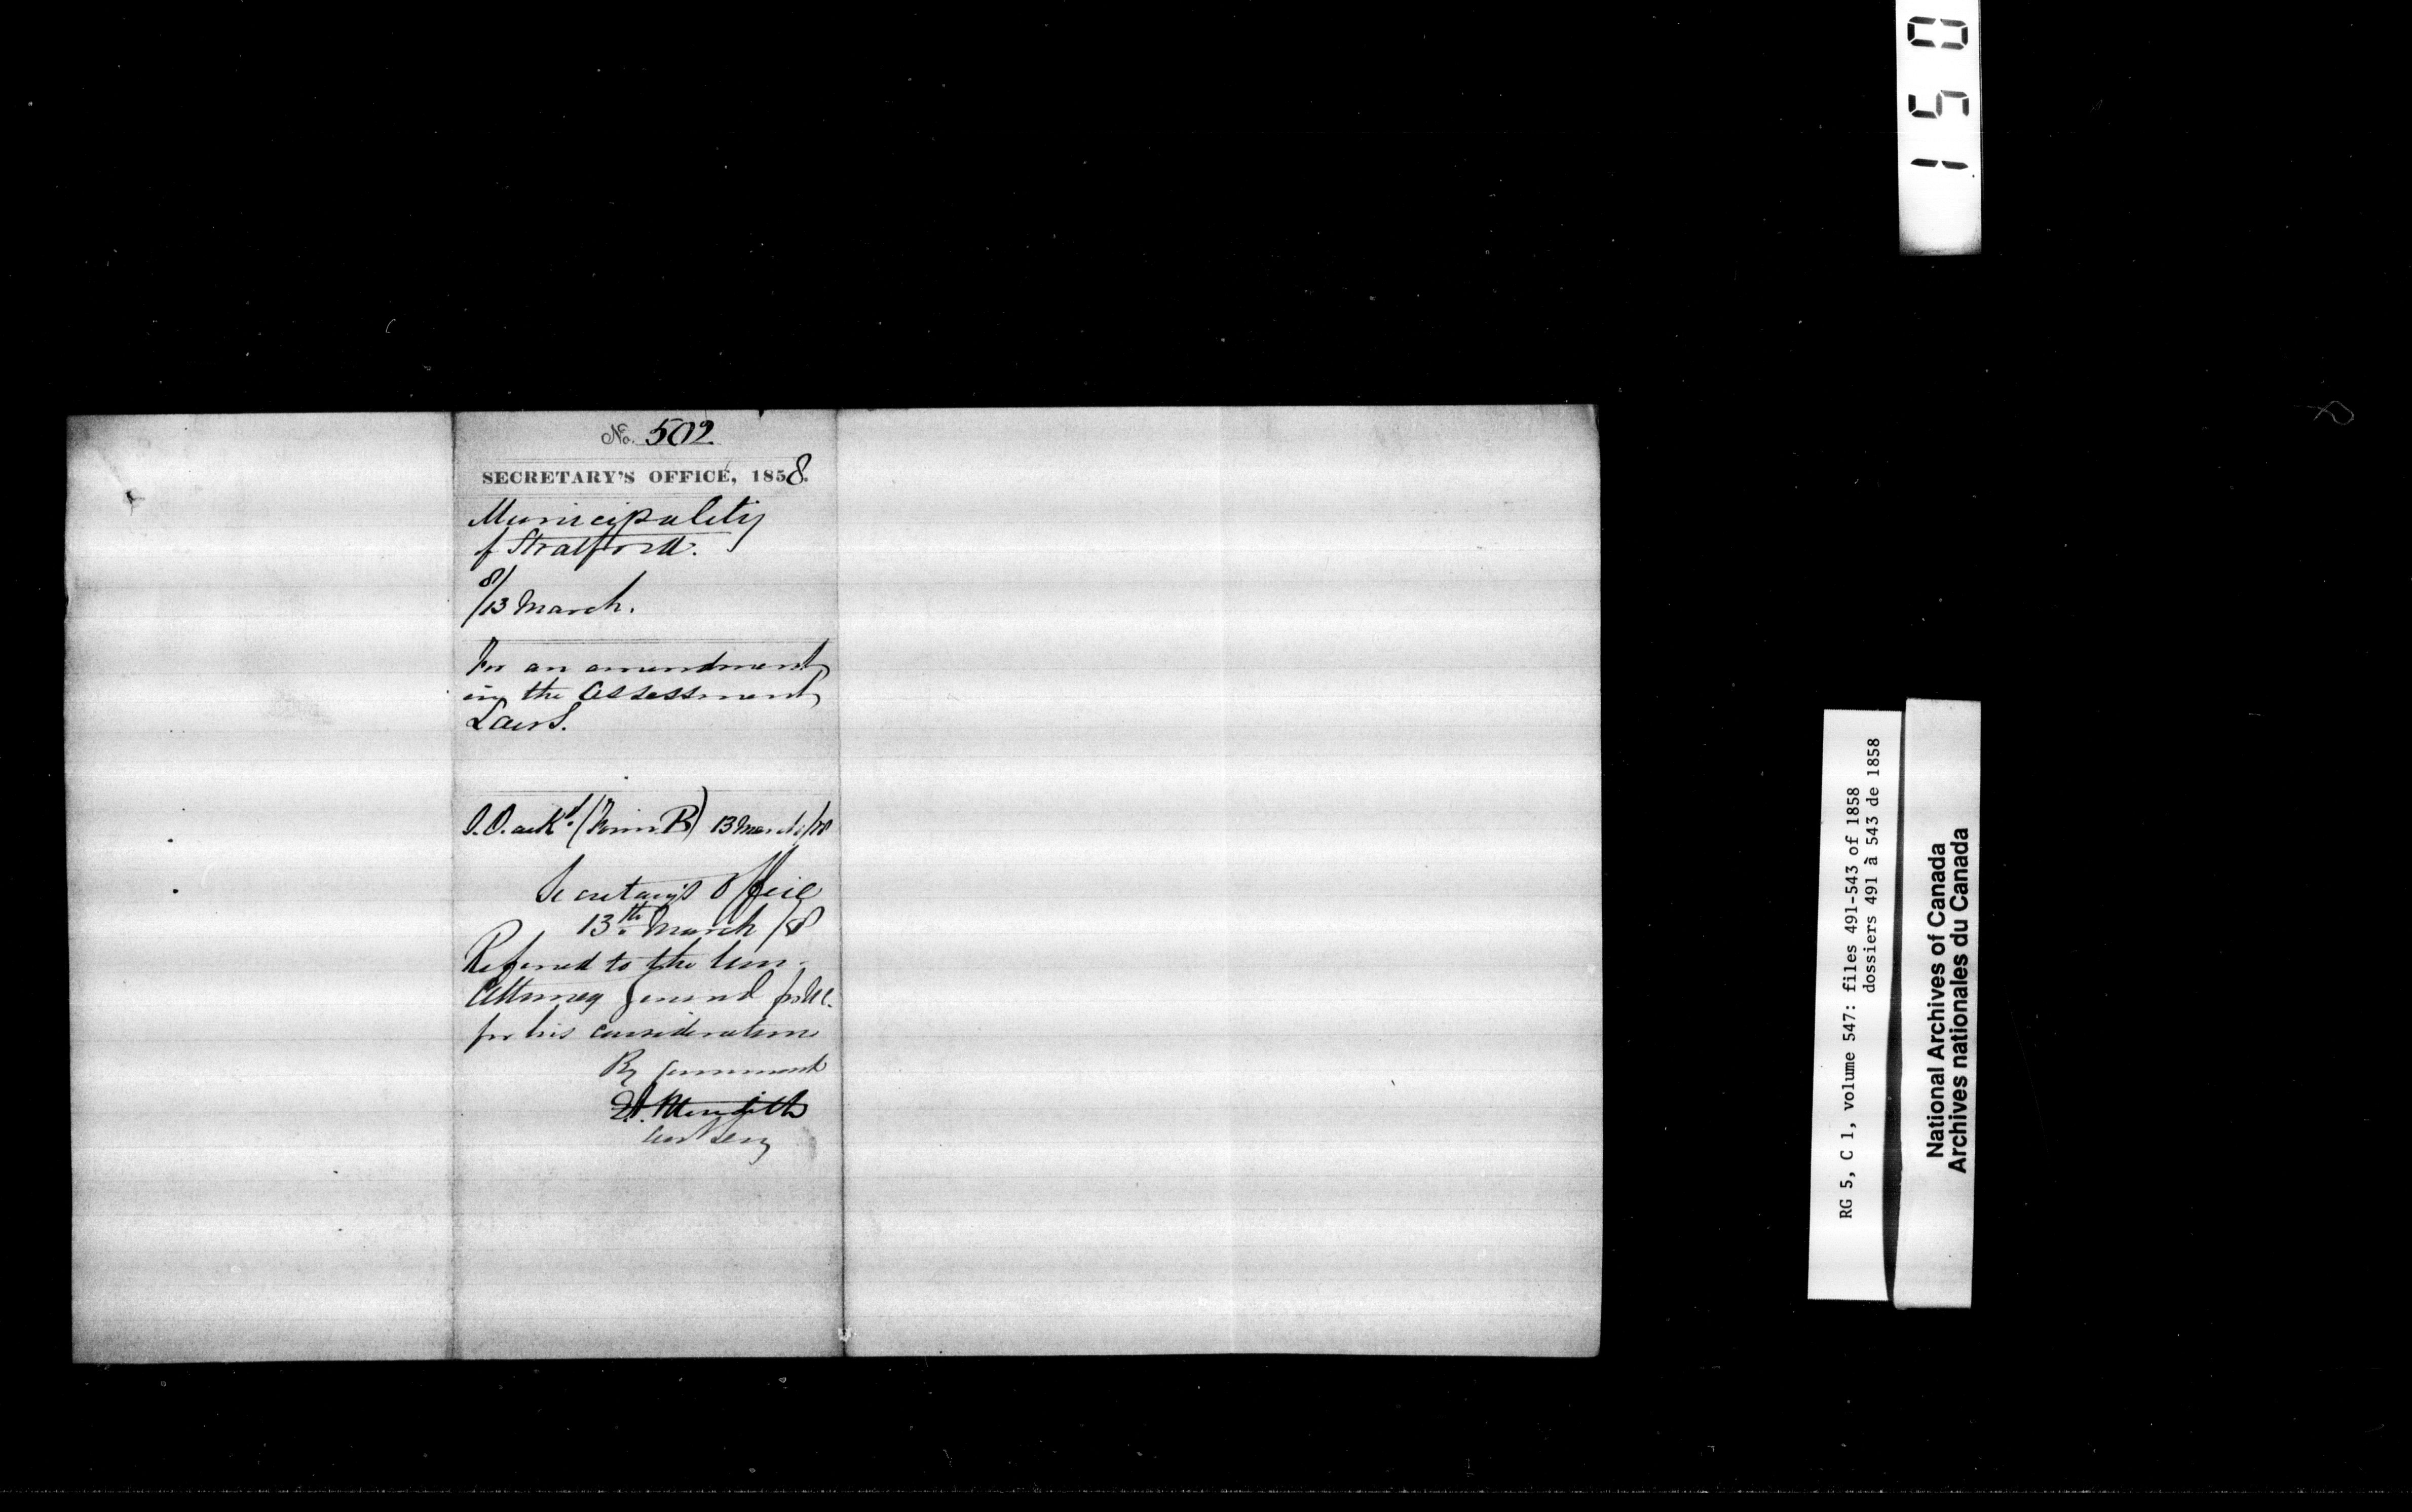 No. 502
SECRETARY'S OFFICE, 1858.
Municipality
of Stratford.
8/13 March.
For an amendment
in the Assessment
Laws.
ackd. (Form B) 13 March/58
Secretary's Office
13th March /58
Referred to the Hon.
Attorney General for U.C.
for his consideration
By Command
E. A. Meredith
Asst Secy
150
RG 5, C 1, volume 547: files 491-543 of 1858
dossiers 491 à 543 de 1858
National Archives of Canada
Archives nationales du Canada